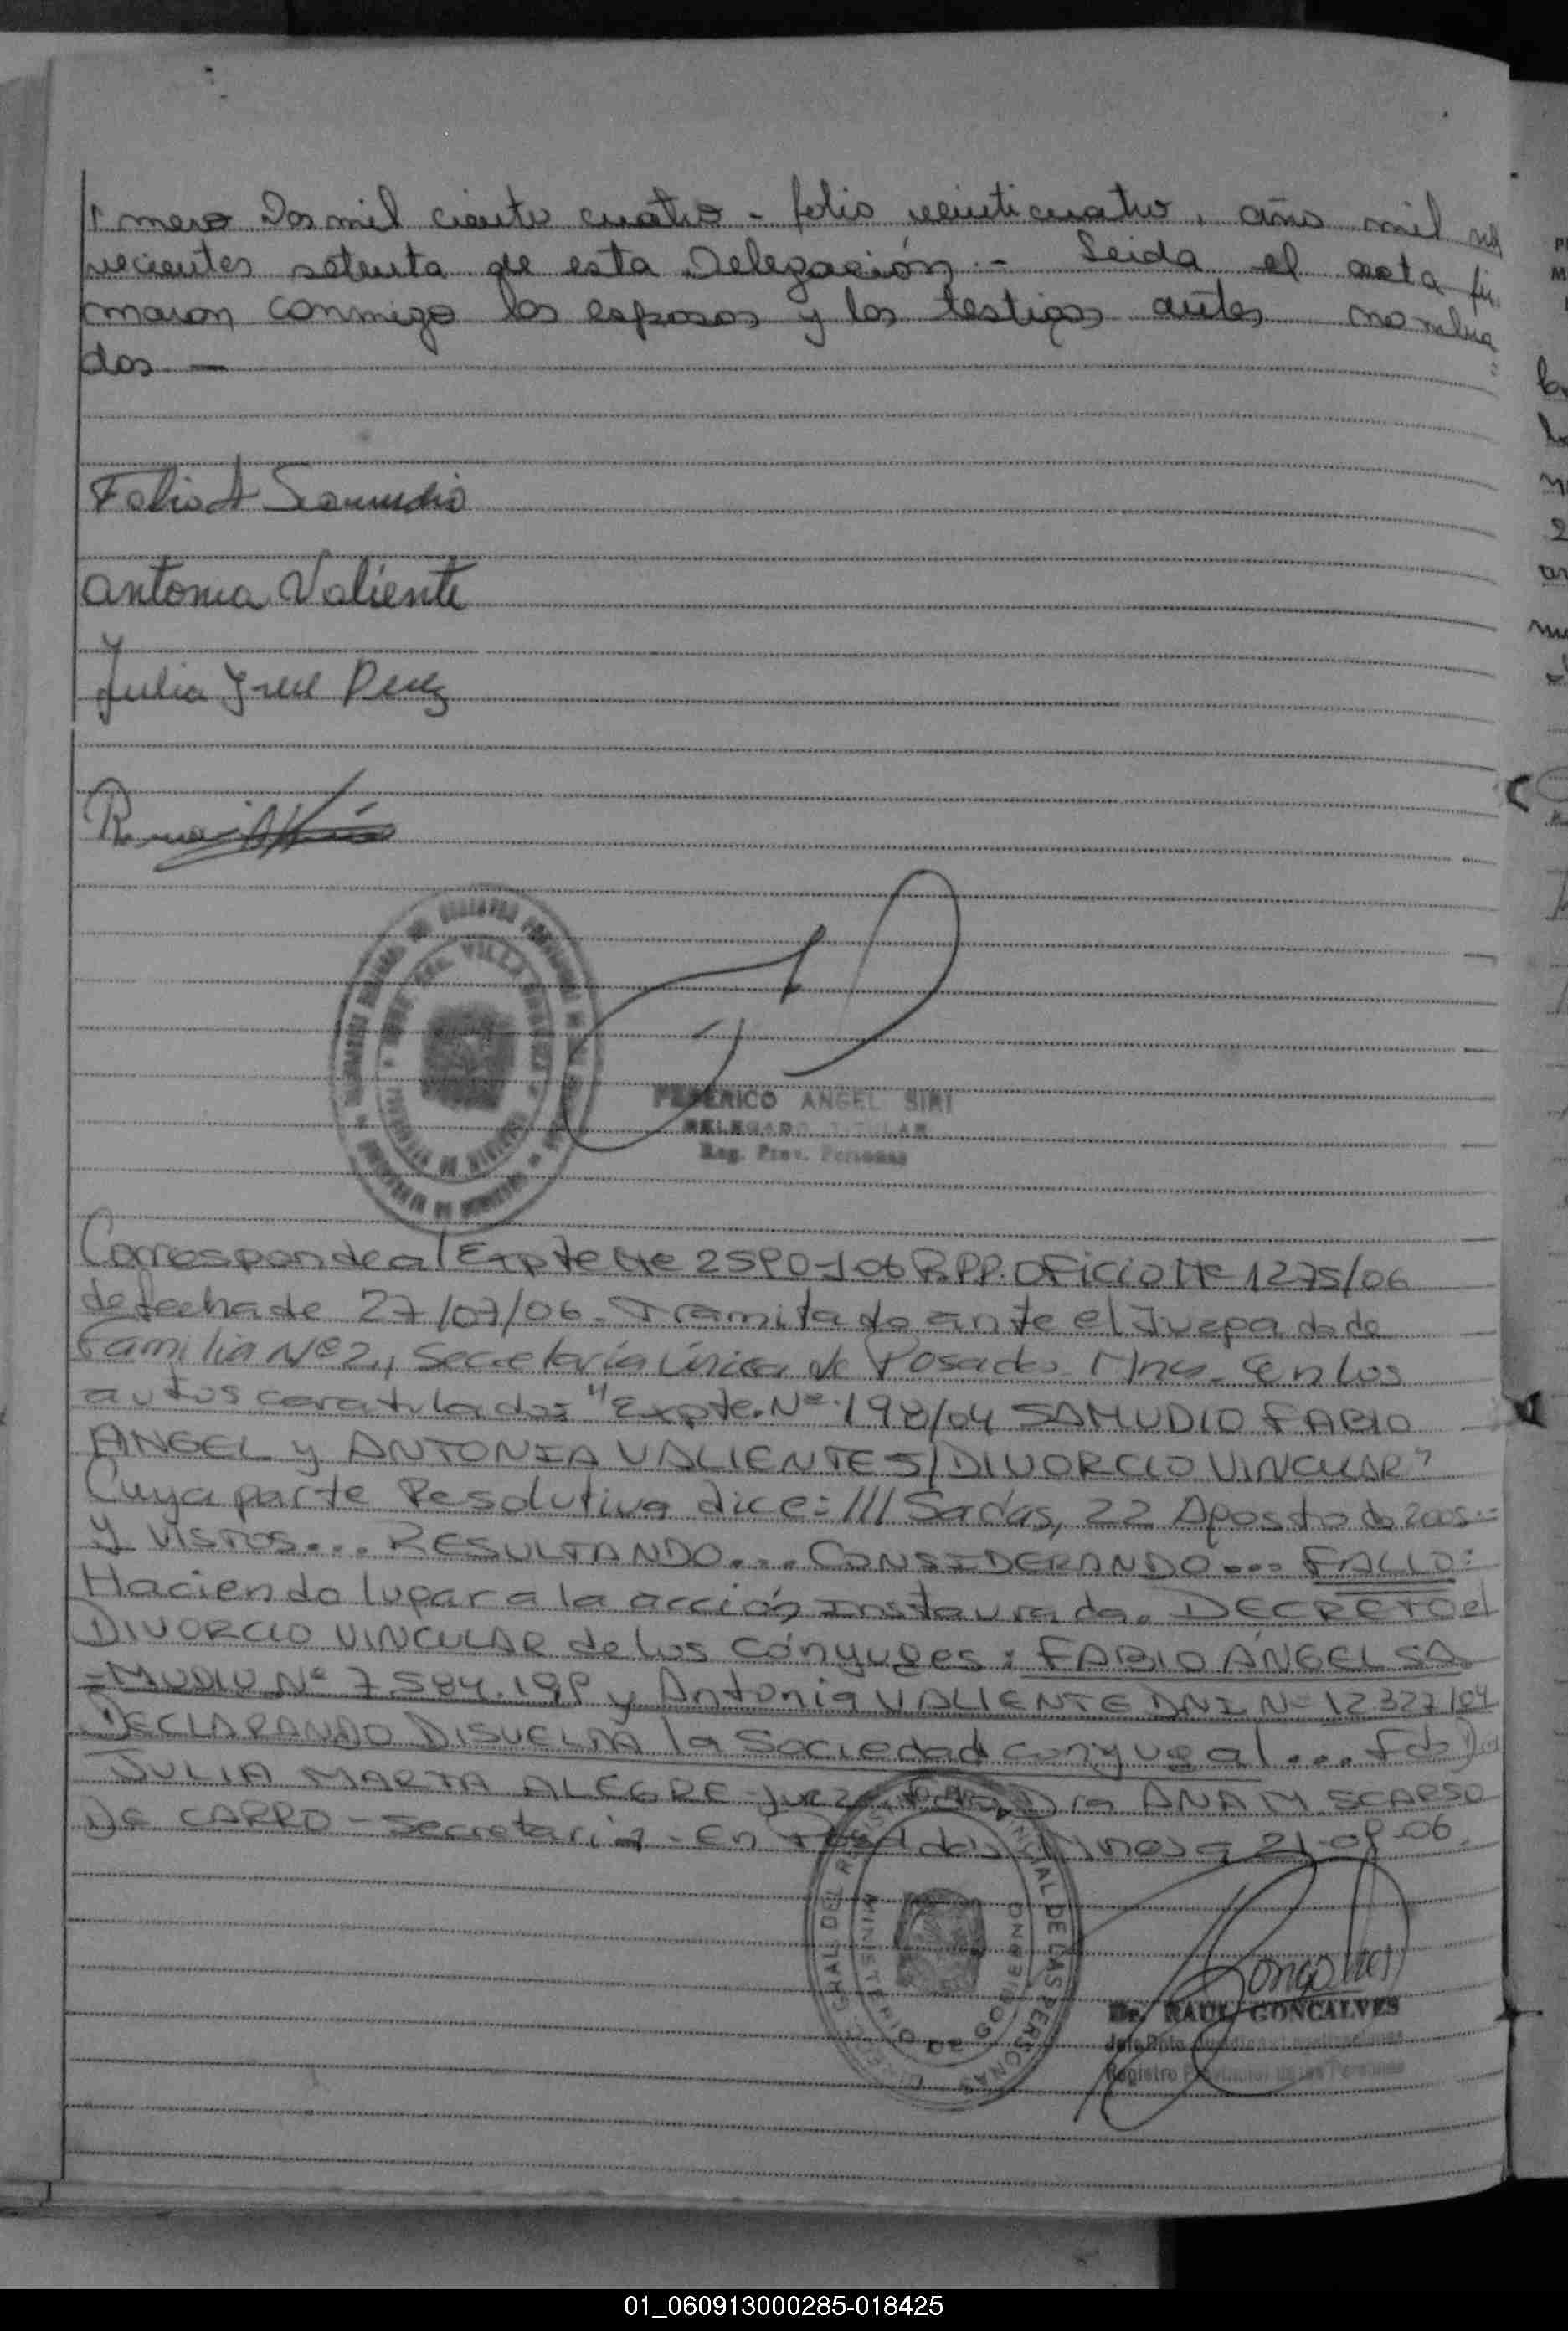 mero Dos mil ciento cuatro - folio veinticuatro, año mil no
vecientos setenta de esta Delegación.- Leida el acta fir
maron conmigo los esposos y los testigos antes nombra
dos -
Fabio A Samudio
Antonia Valiente
Julia Irene Perez
FEDERICO ANGEL SIRI
DELEGADO TITULAR
Reg. Prov. Personas
Corresponde al Expte Nº 2590-106 R.P.P. Oficio Nº 1275/06
de fecha de 27/07/06. Tramitado ante el Juzgado de
Familia Nº 2, Secretaría Única de Posadas Mnes. En los
autos caratulados "Expte. Nº 198/04 SAMUDIO FABIO
ANGEL y ANTONIA VALIENTE S/DIVORCIO VINCULAR"
Cuya parte Resolutiva dice: /// Sadas, 22 Agosto de 2005.-
Y VISTOS... RESULTANDO... CONSIDERANDO... FALLO:
Haciendo lugar a la acción Instaurada. DECRETO el
DIVORCIO VINCULAR de los Cónyuges: FABIO ÁNGEL SA
-MUDIO Nº 7.584.199 y Antonia VALIENTE DNI Nº 12.327/04
DECLARANDO DISUELTA la Sociedad conyugal... Fdo Dra
JULIA MARTA ALEGRE - Juez Fdo Dra ANA M. SCARSO
De CARRO - Secretaria - En Posadas Mnes a 21-09-06.
MINISTERIO DE GOBIERNO
Dr. RAUL GONCALVES
Registro Provincial de las Personas